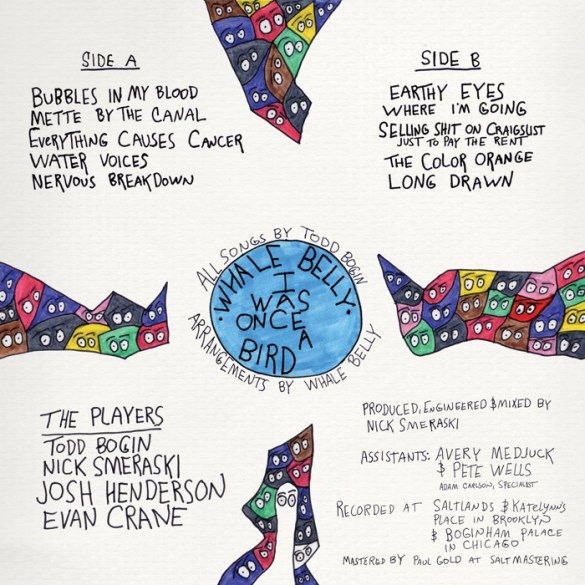 SIDE A
BUBBLES IN MY BLOOD
METTE BY THE CANAL
EVERYTHING CAUSES CANCER
WATER VOICES
NERVOUS BREAKDOWN
SIDE B
EARTHY EYES
WHERE I'M GOING
SELLING SHIT ON CRAIGSLIST
JUST TO PAY THE RENT
THE COLOR ORANGE
LONG DRAWN
ALL SONGS BY TODD BOGIN
WHALE BELLY.
I
WAS
ONCE A
BIRD
ARRANGEMENTS BY WHALE BELLY
THE PLAYERS
TODD BOGIN
NICK SMERASKI
JOSH HENDERSON
EVAN CRANE
PRODUCED, ENGINEERED & MIXED BY
NICK SMERASKI
ASSISTANTS: AVERY MEDJUCK
& PETE WELLS
ADAM CARLSON, SPECIALIST
RECORDED AT SALTLANDS & KATELYNN'S
PLACE IN BROOKLYN
& BOGINHAM PALACE
IN CHICAGO
MASTERED BY PAUL GOLD AT SALT MASTERING